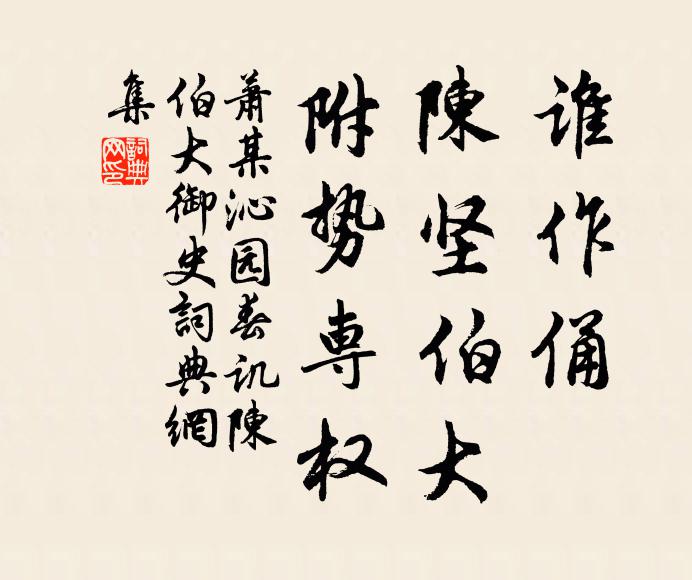 谁作俑
陳坚伯大
附势専权
萧某沁园春讥陳
伯大御史詞典網
集
詞典网印